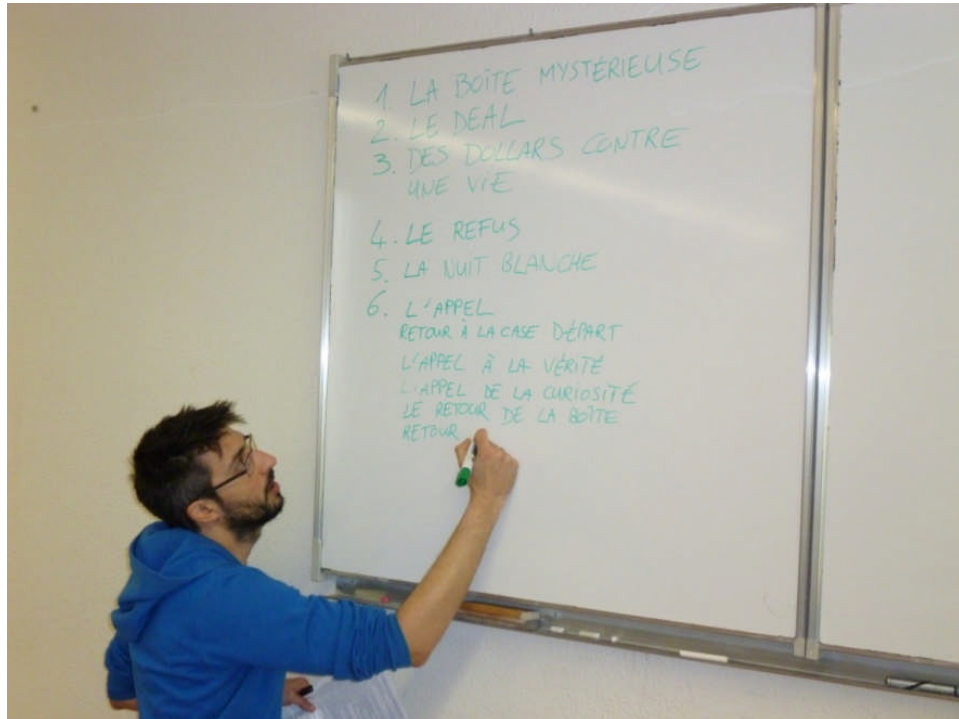 1. LA BOÎTE MYSTÉRIEUSE
2. LE DEAL
3. DES DOLLARS CONTRE
UNE VIE
4. LE REFUS
5. LA NUIT BLANCHE
6. L'APPEL
RETOUR À LA CASE DÉPART
L'APPEL À LA VÉRITÉ
L'APPEL DE LA CURIOSITÉ
LE RETOUR DE LA BOÎTE
RETOUR